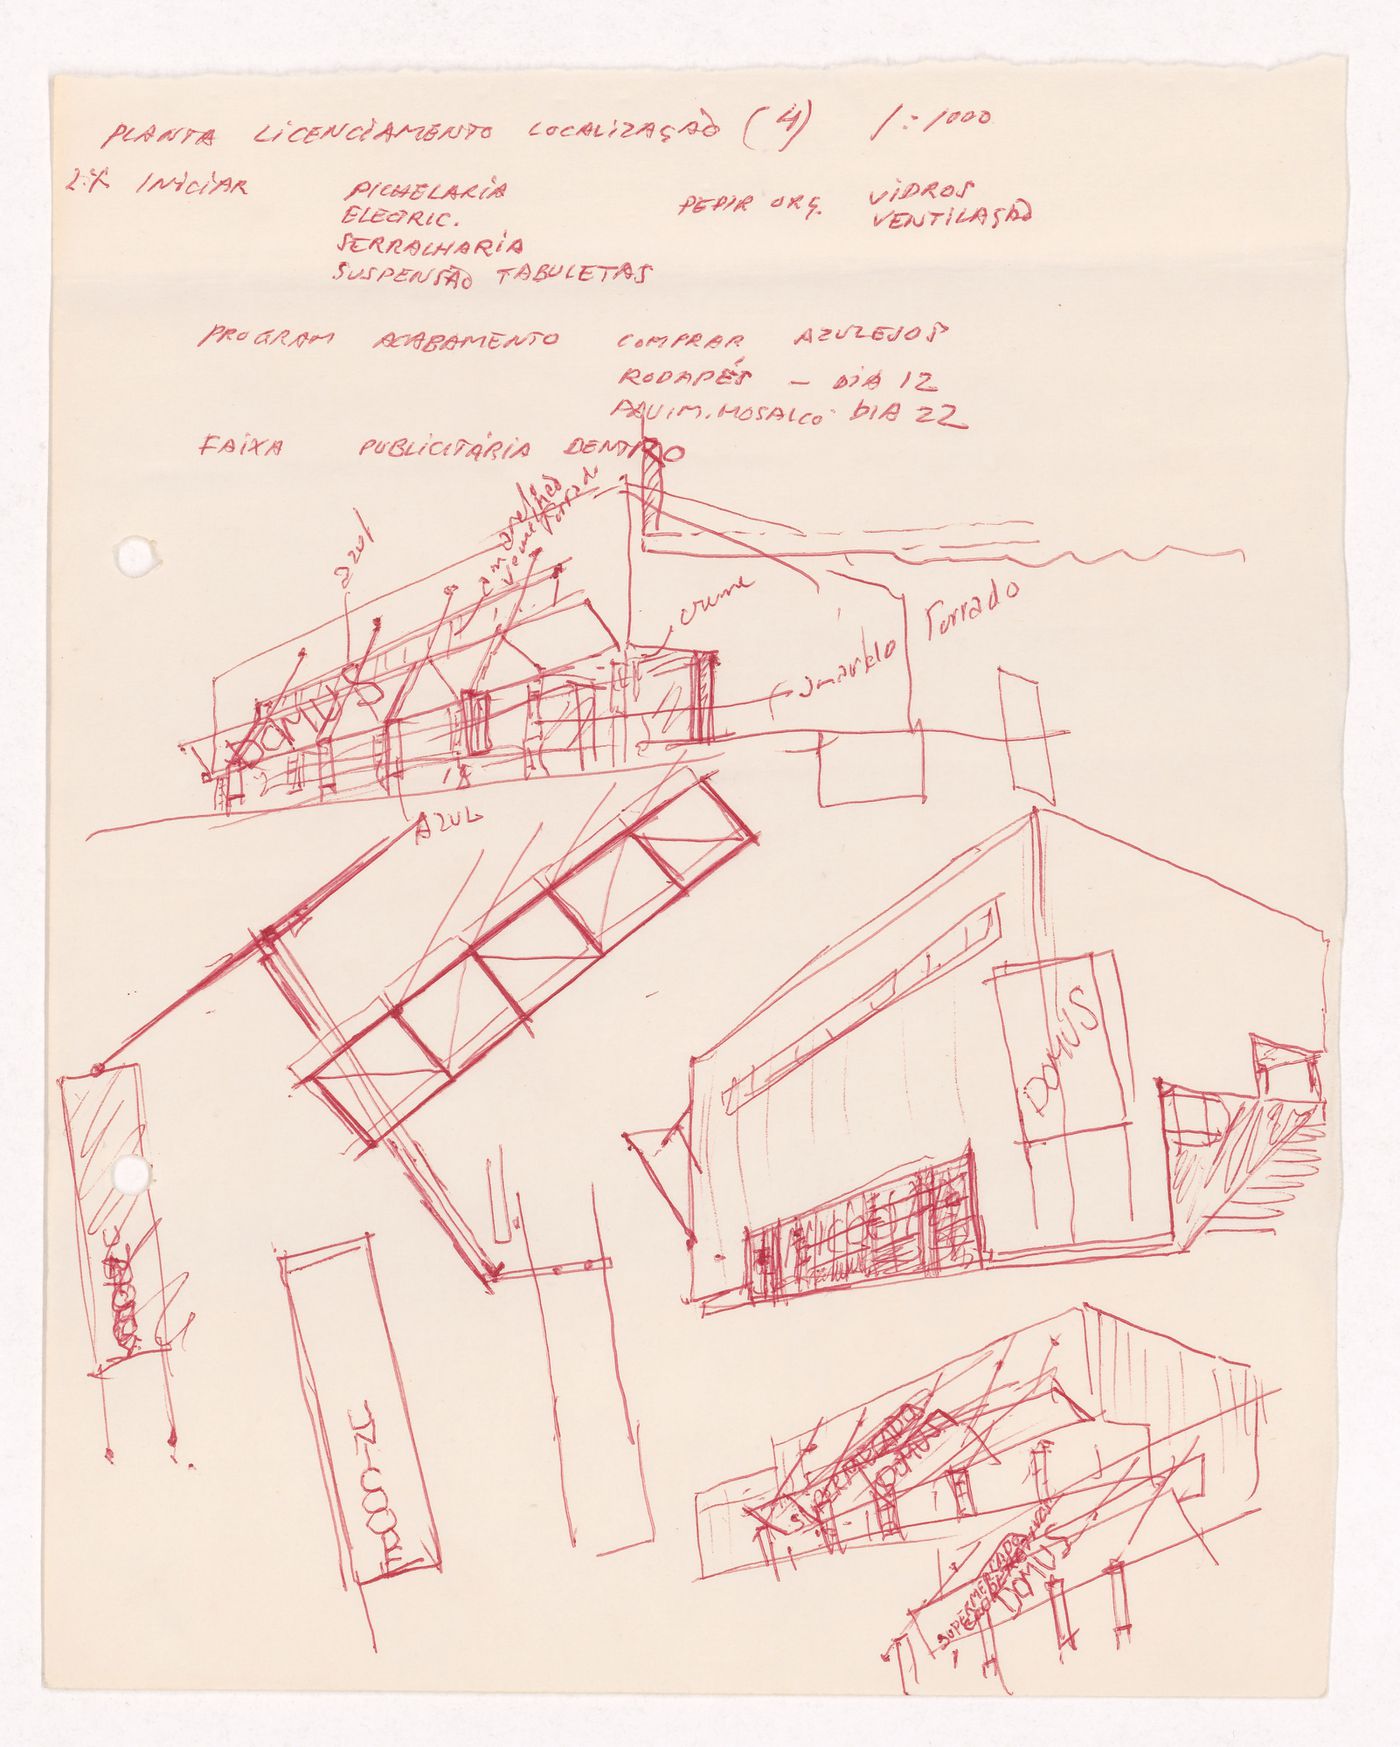 PLANTA LICENCIAMENTO LOCALIZAÇÃO (4) 1:1000
INICIAR PICHELARIA PEDIR ORÇ. VIDROS
ELECTRIC. VENTILAÇÃO
SERRALHARIA
SUSPENSÃO TABULETAS
PROGRAM ACABAMENTO COMPRAR AZULEJOS
RODAPÉS — DIA 12
PAVIM. MOSAICO DIA 22
FAIXA PUBLICITÁRIA DENTRO
azul
amarelo
vermelhão
Torrado
creme
amarelo Torrado
DOMUS
AZUL
DOMUS
SUPERMERCADO
DOMUS
SUPERMERCADO
DOMUS